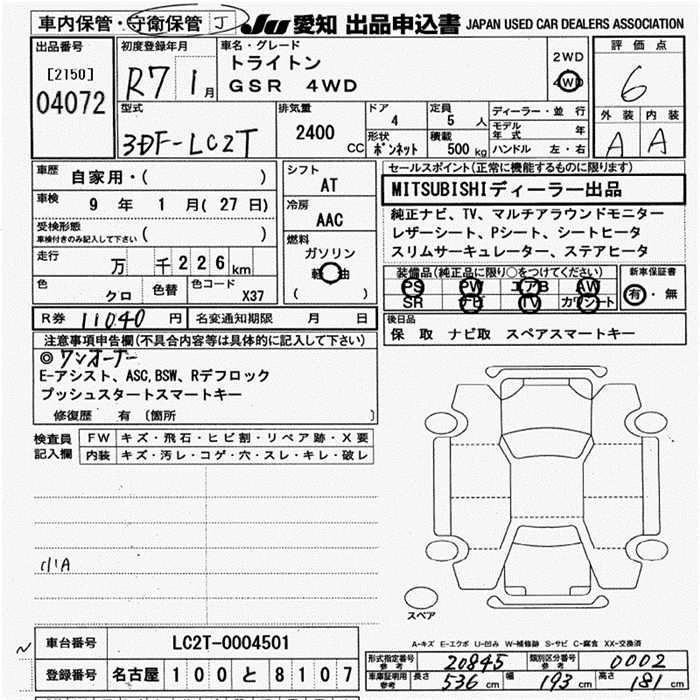 車内保管・守衛保管 J JU 愛知 出品申込書 JAPAN USED CAR DEALERS ASSOCIATION
出品番号 [2150] 04072
初度登録年月 R7 1月
車名・グレード トライトン GSR 4WD
2WD 4WD
評価点 6
外装 A 内装 A
型式 3DF-LC2T
排気量 2400 CC
ドア 4 定員 5 人
形状 ボンネット 積載 500 kg
ディーラー・並行
モデル年式 年
ハンドル 左・右
車歴 自家用・( )
車検 9年 1月(27日)
受検形態 車検付きのみ記入して下さい ( )
走行 万 千 2 2 6 km
色 クロ 色替 色コード X37
シフト AT
冷房 AAC
燃料 ガソリン 軽油 ( )
セールスポイント(正常に機能するものに限ります)
MITSUBISHIディーラー出品
純正ナビ、TV、マルチアラウンドモニター
レザーシート、Pシート、シートヒータ
スリムサーキュレーター、ステアヒータ
装備品(純正品に限り○をつけてください)
PS PW エアB AW
SR ナビ TV カワシート
新車保証書 有・無
R券 11040 円 名変通知期限 月 日
後日品
保 取 ナビ取 スペアスマートキー
注意事項申告欄(不具合内容等は具体的に記入して下さい)
◎ワンオーナー
E-アシスト、ASC,BSW、Rデフロック
プッシュスタートスマートキー
修復歴 有 〔箇所 〕
検査員記入欄 FW キズ・飛石・ヒビ割・リペア跡・X要
内装 キズ・汚レ・コゲ・穴・スレ・キレ・破レ
小A
スペア
A-キズ E-エクボ U-凹み W-補修跡 S-サビ C-腐食 XX-交換済
車台番号 LC2T-0004501
登録番号 名古屋 100 と 8107
形式指定番号 参考 20845 類別区分番号 参考 0002
車庫証明用 参考 長さ 536 cm 幅 193 cm 高さ 181 cm